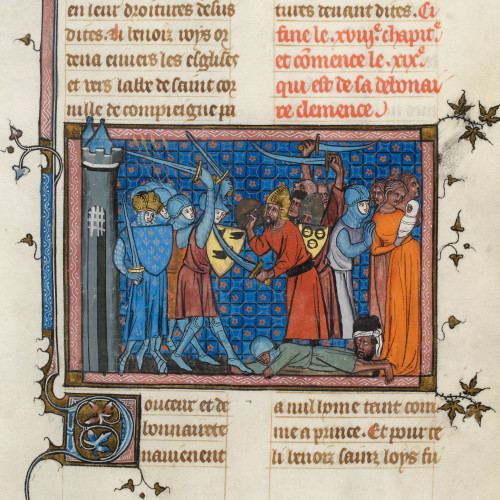 en leur droitures desus
dites. Li benoiz roys or
dena envers les esglises
et vers labbe de saint cor
nille de compieigne pr
tures devant dites. Ci
fine le .xviii.e chapitre
et commence le .xix.e
qui est de sa debonai
re clemence.
Douceur et de
bonnairete
navienent
a nul home tient com
me a prince. Et pour ce
li benoiz sainz loys fu